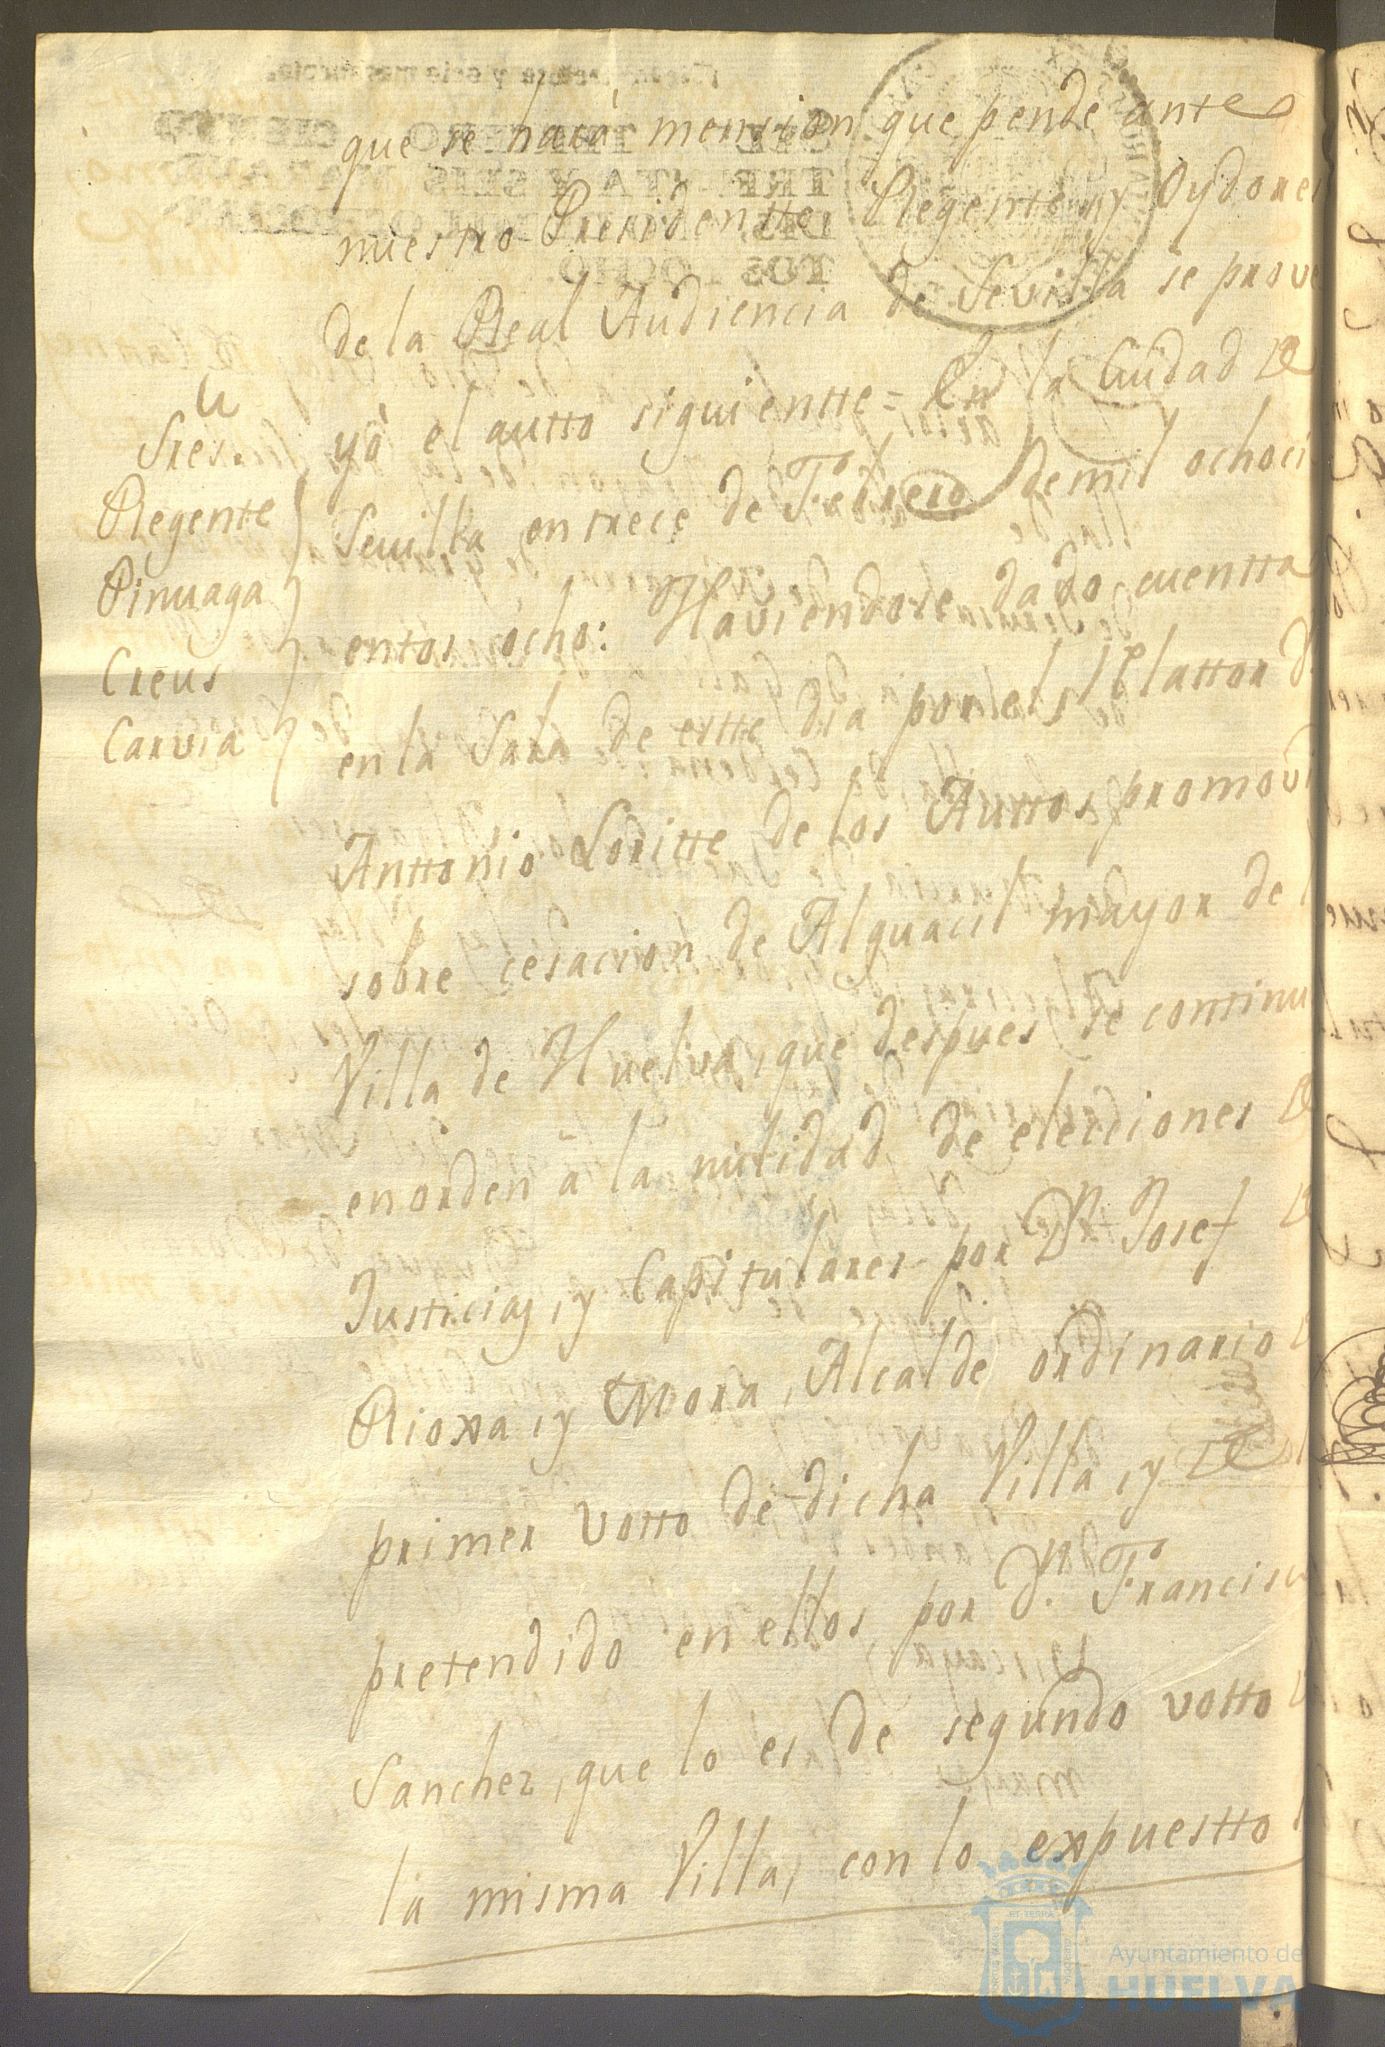 que se hará mension que pende ante
nuestro Presidentte Regente, y Oydores
de la Real Audiencia de Sevilla se prove
yó el autto siguientte = En la Ciudad de
Sevilla en trece de Febrero de mil ochoci
entos ocho: Haviendose dado cuentta
en la Sala de estte dia por el Relattor D.
Anttonio Loritte de los Auttos promovi
sobre cesacion de Alguacil mayor de l
Villa de Huelva, que despues se continu
en orden á la nulidad de elecciones de
Justicias, y Capitulares por Dn. Josef de
Rioxa, y Mora, Alcalde ordinario
primer votto de dicha Villa, y de
pretendido en ellos, por Dn. Francisc
Sanchez, que lo es de segundo votto
la misma Villa, con lo expuestto
Sres.
Regente
Pinuaga
Creus
Carvia
Ayuntamiento de
HUELVA